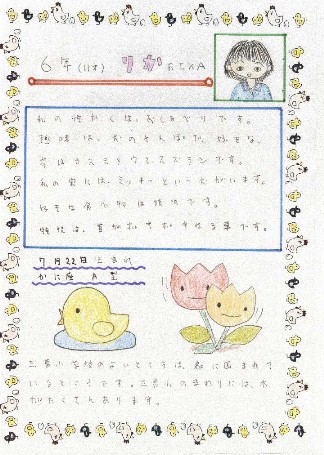 6年(11才) りか
私の性かくは、おしゃべりです。
趣味は、犬のさんぽで、好きな
花はカスミソウとスズランです。
私の家には、ミッキーという犬がいます。
好きな食べ物は焼肉です。
特技は、
7月22日生まれ
かに座 A型
三 小学校のよいところは、緑に囲まれて
いるところです。三 のまわりには、木
がたくさんあります。